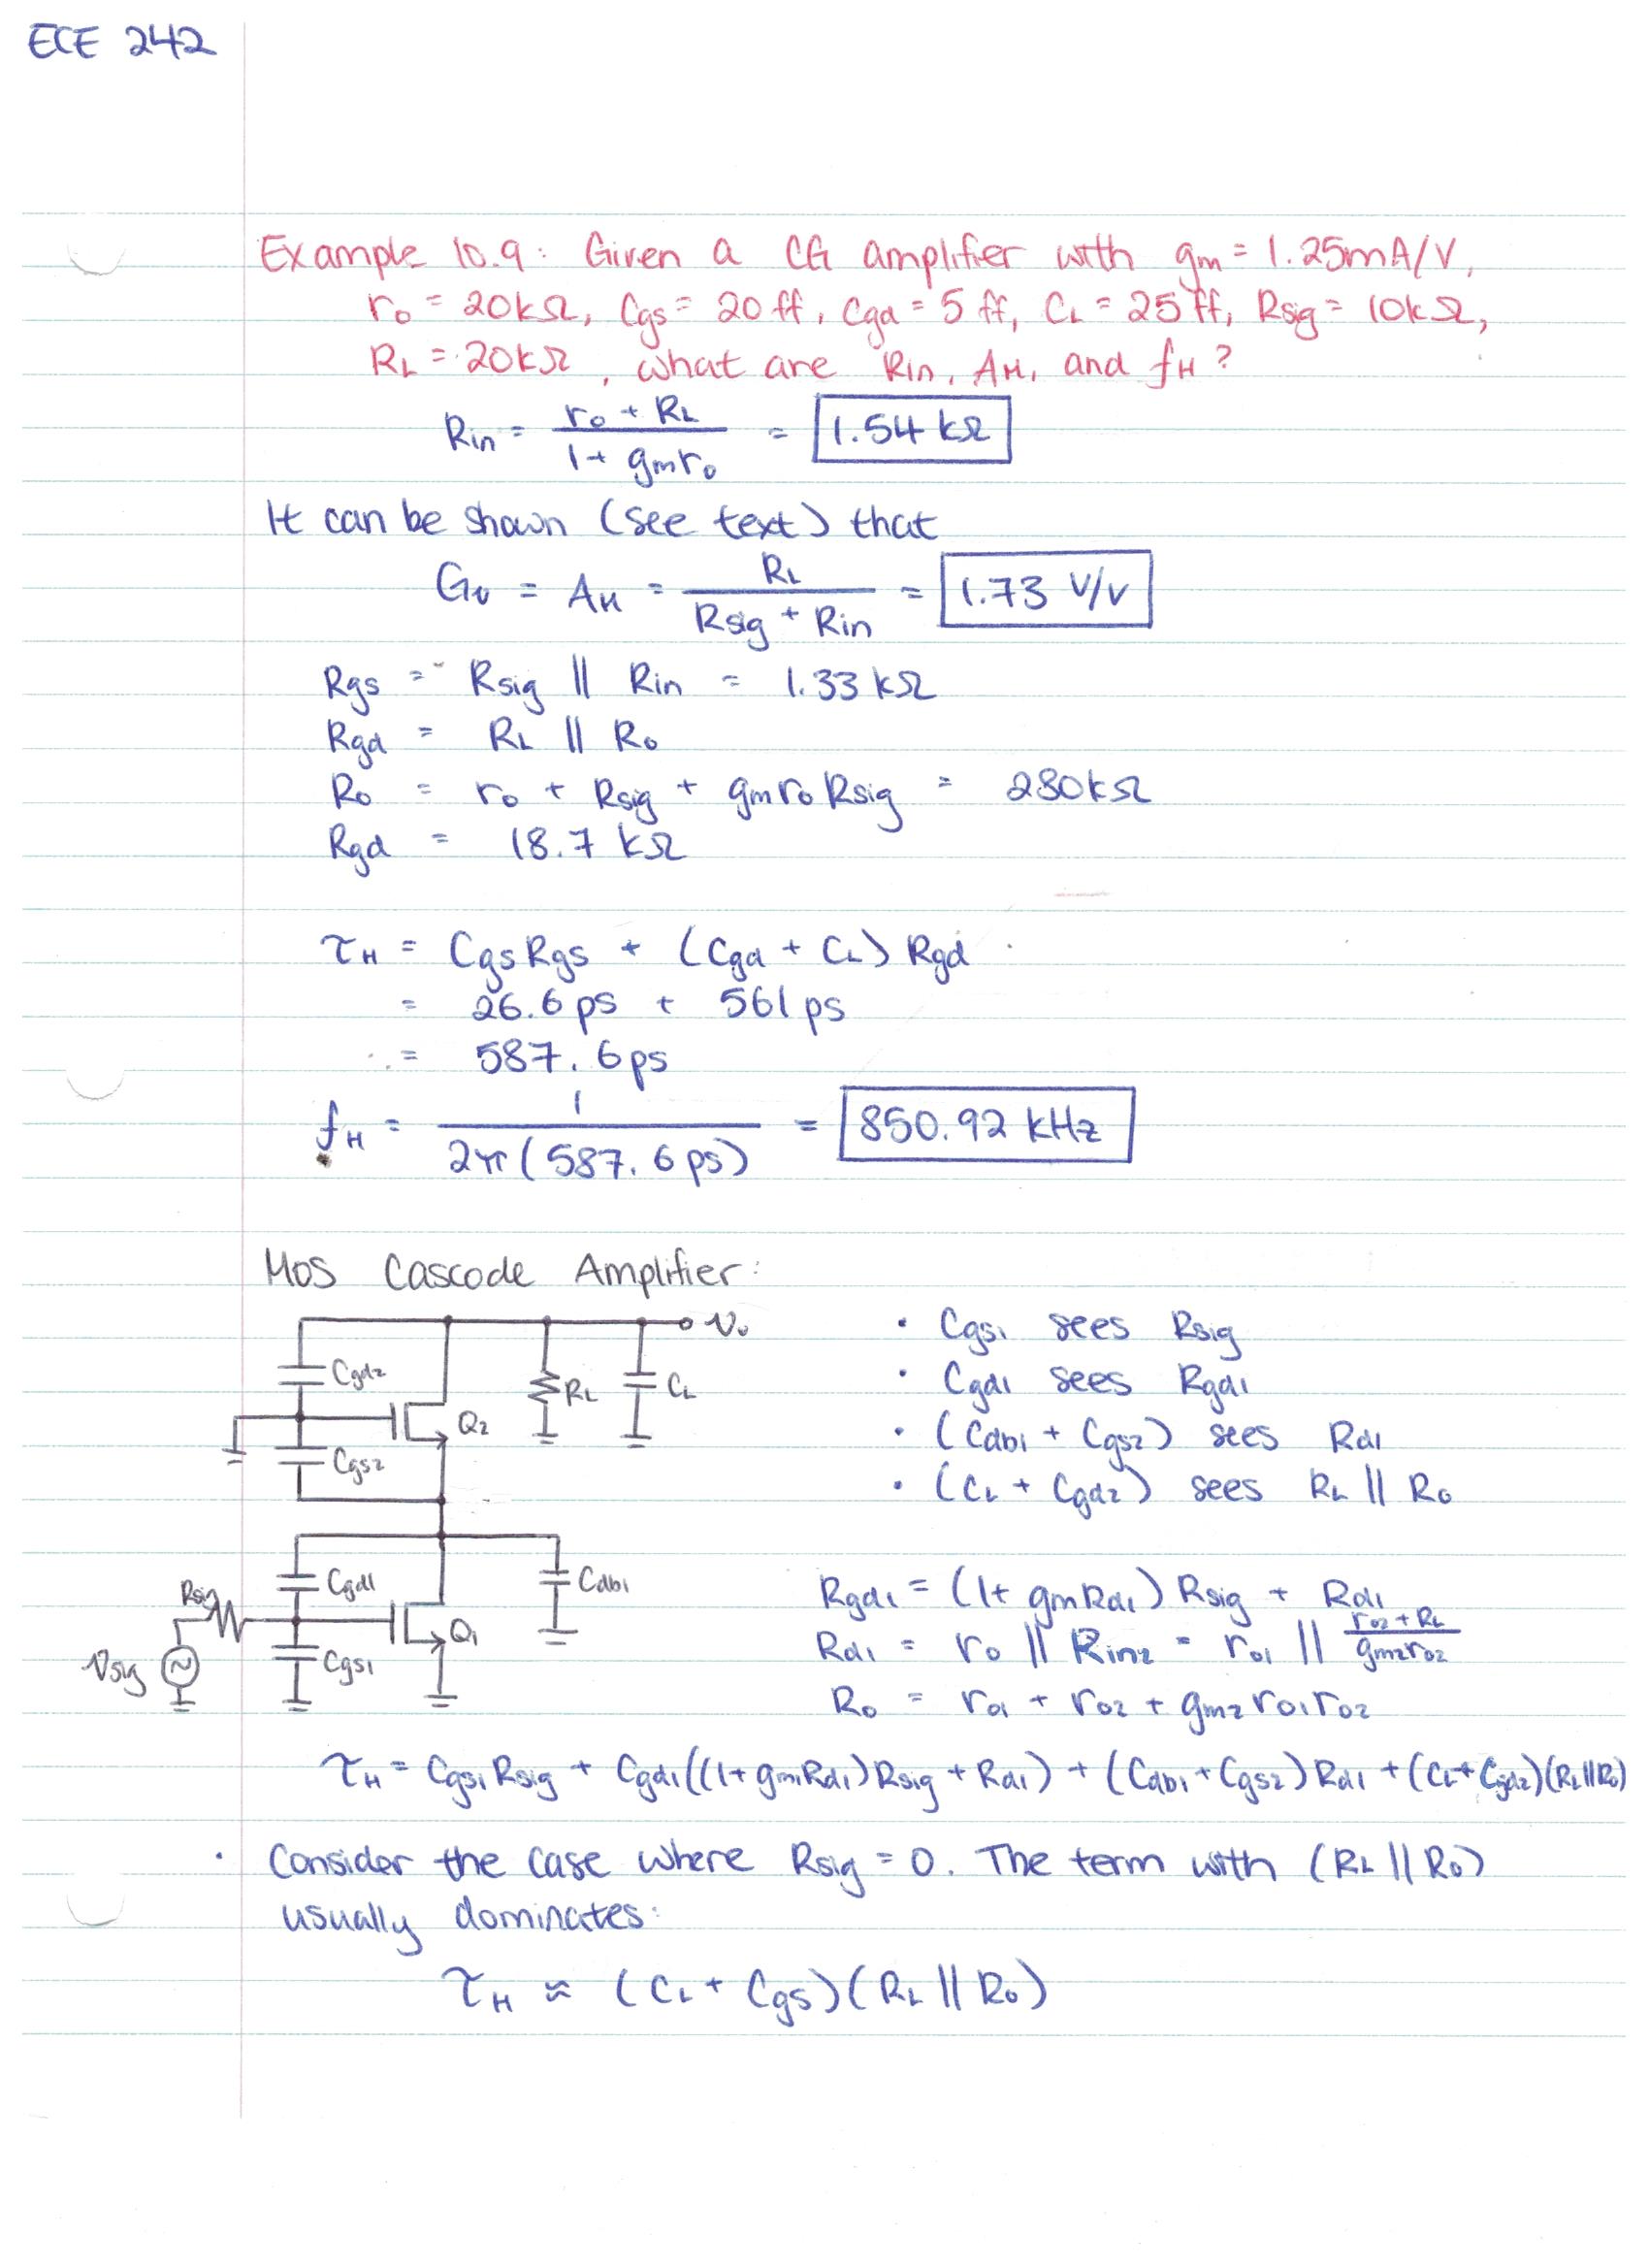 ECE 242
Example 10.9: Given a CG amplifier with gm = 1.25mA/V,
ro = 20kΩ, Cgs = 20 ff, Cgd = 5 ff, CL = 25 ff, Rsig = 10kΩ,
RL = 20kΩ, what are Rin, AM, and fH?
Rin = (ro + RL) / (1 + gmro) = 1.54 kΩ
It can be shown (see text) that
Gv = AM = RL / (Rsig + Rin) = 1.73 V/V
Rgs = Rsig || Rin = 1.33 kΩ
Rgd = RL || Ro
Ro = ro + Rsig + gmroRsig = 280kΩ
Rgd = 18.7 kΩ
τH = CgsRgs + (Cgd + CL) Rgd
= 26.6 ps + 561 ps
= 587.6 ps
fH = 1 / 2π(587.6 ps) = 850.92 kHz
MOS Cascode Amplifier:
vo
Cgd2
RL
CL
Q2
Cgs2
Cgd1
Cdb1
Rsig
Q1
Vsig
Cgs1
• Cgs1 sees Rsig
• Cgd1 sees Rgd1
• (Cdb1 + Cgs2) sees Rd1
• (CL + Cgd2) sees RL || Ro
Rgd1 = (1 + gmRd1) Rsig + Rd1
Rd1 = ro || Rin2 = ro1 || (ro2 + RL) / gm2ro2
Ro = ro1 + ro2 + gm2ro1ro2
τH = Cgs1Rsig + Cgd1((1 + gm1Rd1)Rsig + Rd1) + (Cdb1 + Cgs2)Rd1 + (CL + Cgd2)(RL || Ro)
• Consider the case where Rsig = 0. The term with (RL || Ro)
usually dominates:
τH ≈ (CL + Cgs)(RL || Ro)